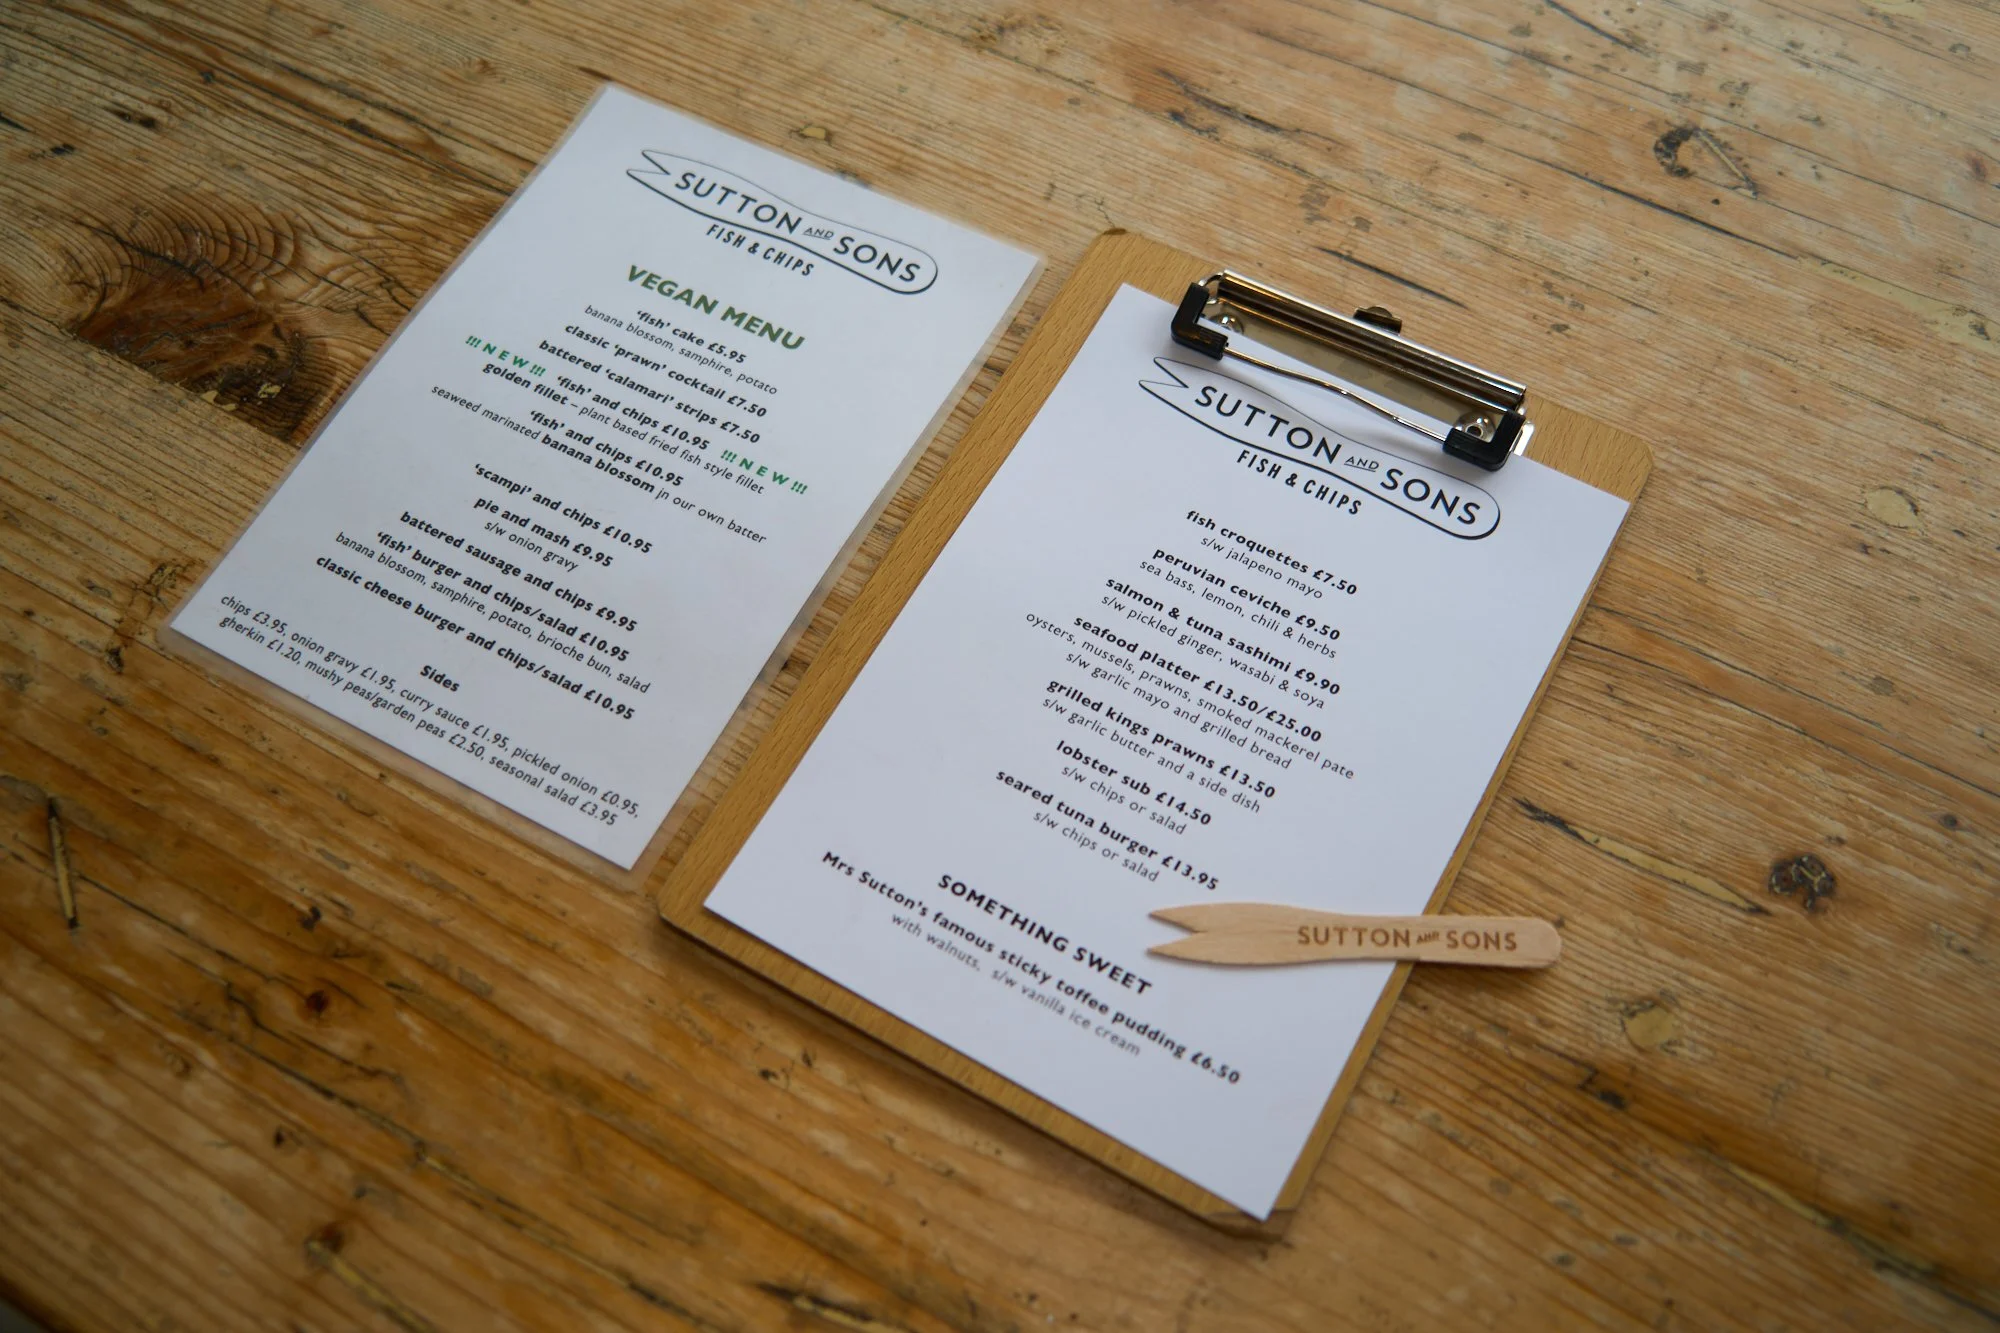 SUTTON AND SONS
FISH & CHIPS
VEGAN MENU
'fish' cake £5.95
banana blossom, samphire, potato
classic 'prawn' cocktail £7.50
battered 'calamari' strips £7.50
!!! N E W !!! 'fish' and chips £10.95 !!! N E W !!!
golden fillet – plant based fried fish style fillet
'fish' and chips £10.95
seaweed marinated banana blossom in our own batter
'scampi' and chips £10.95
pie and mash £9.95
s/w onion gravy
battered sausage and chips £9.95
'fish' burger and chips/salad £10.95
banana blossom, samphire, potato, brioche bun, salad
classic cheese burger and chips/salad £10.95
Sides
chips £3.95, onion gravy £1.95, curry sauce £1.95, pickled onion £0.95,
gherkin £1.20, mushy peas/garden peas £2.50, seasonal salad £3.95
SUTTON AND SONS
FISH & CHIPS
fish croquettes £7.50
s/w jalapeno mayo
peruvian ceviche £9.50
sea bass, lemon, chili & herbs
salmon & tuna sashimi £9.90
s/w pickled ginger, wasabi & soya
seafood platter £13.50/£25.00
oysters, mussels, prawns, smoked mackerel pate
s/w garlic mayo and grilled bread
grilled kings prawns £13.50
s/w garlic butter and a side dish
lobster sub £14.50
s/w chips or salad
seared tuna burger £13.95
s/w chips or salad
SOMETHING SWEET
Mrs Sutton's famous sticky toffee pudding £6.50
with walnuts, s/w vanilla ice cream
SUTTON AND SONS